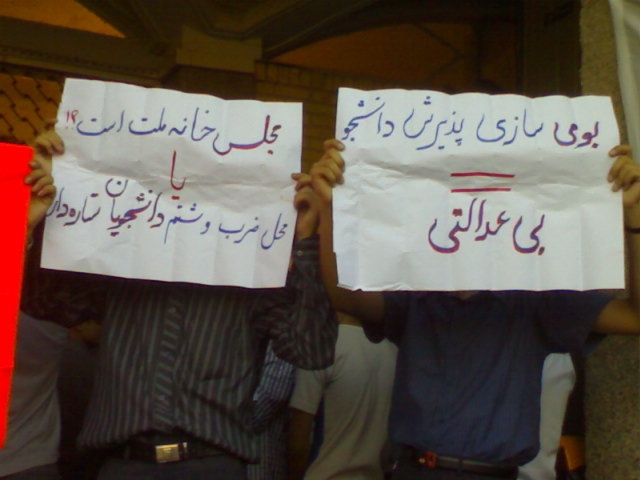 بومی سازی پذیرش دانشجو
=
بی عدالتی
مجلس خانه ملت است؟!
یا
محل ضرب و شتم دانشجویان ستاره دار